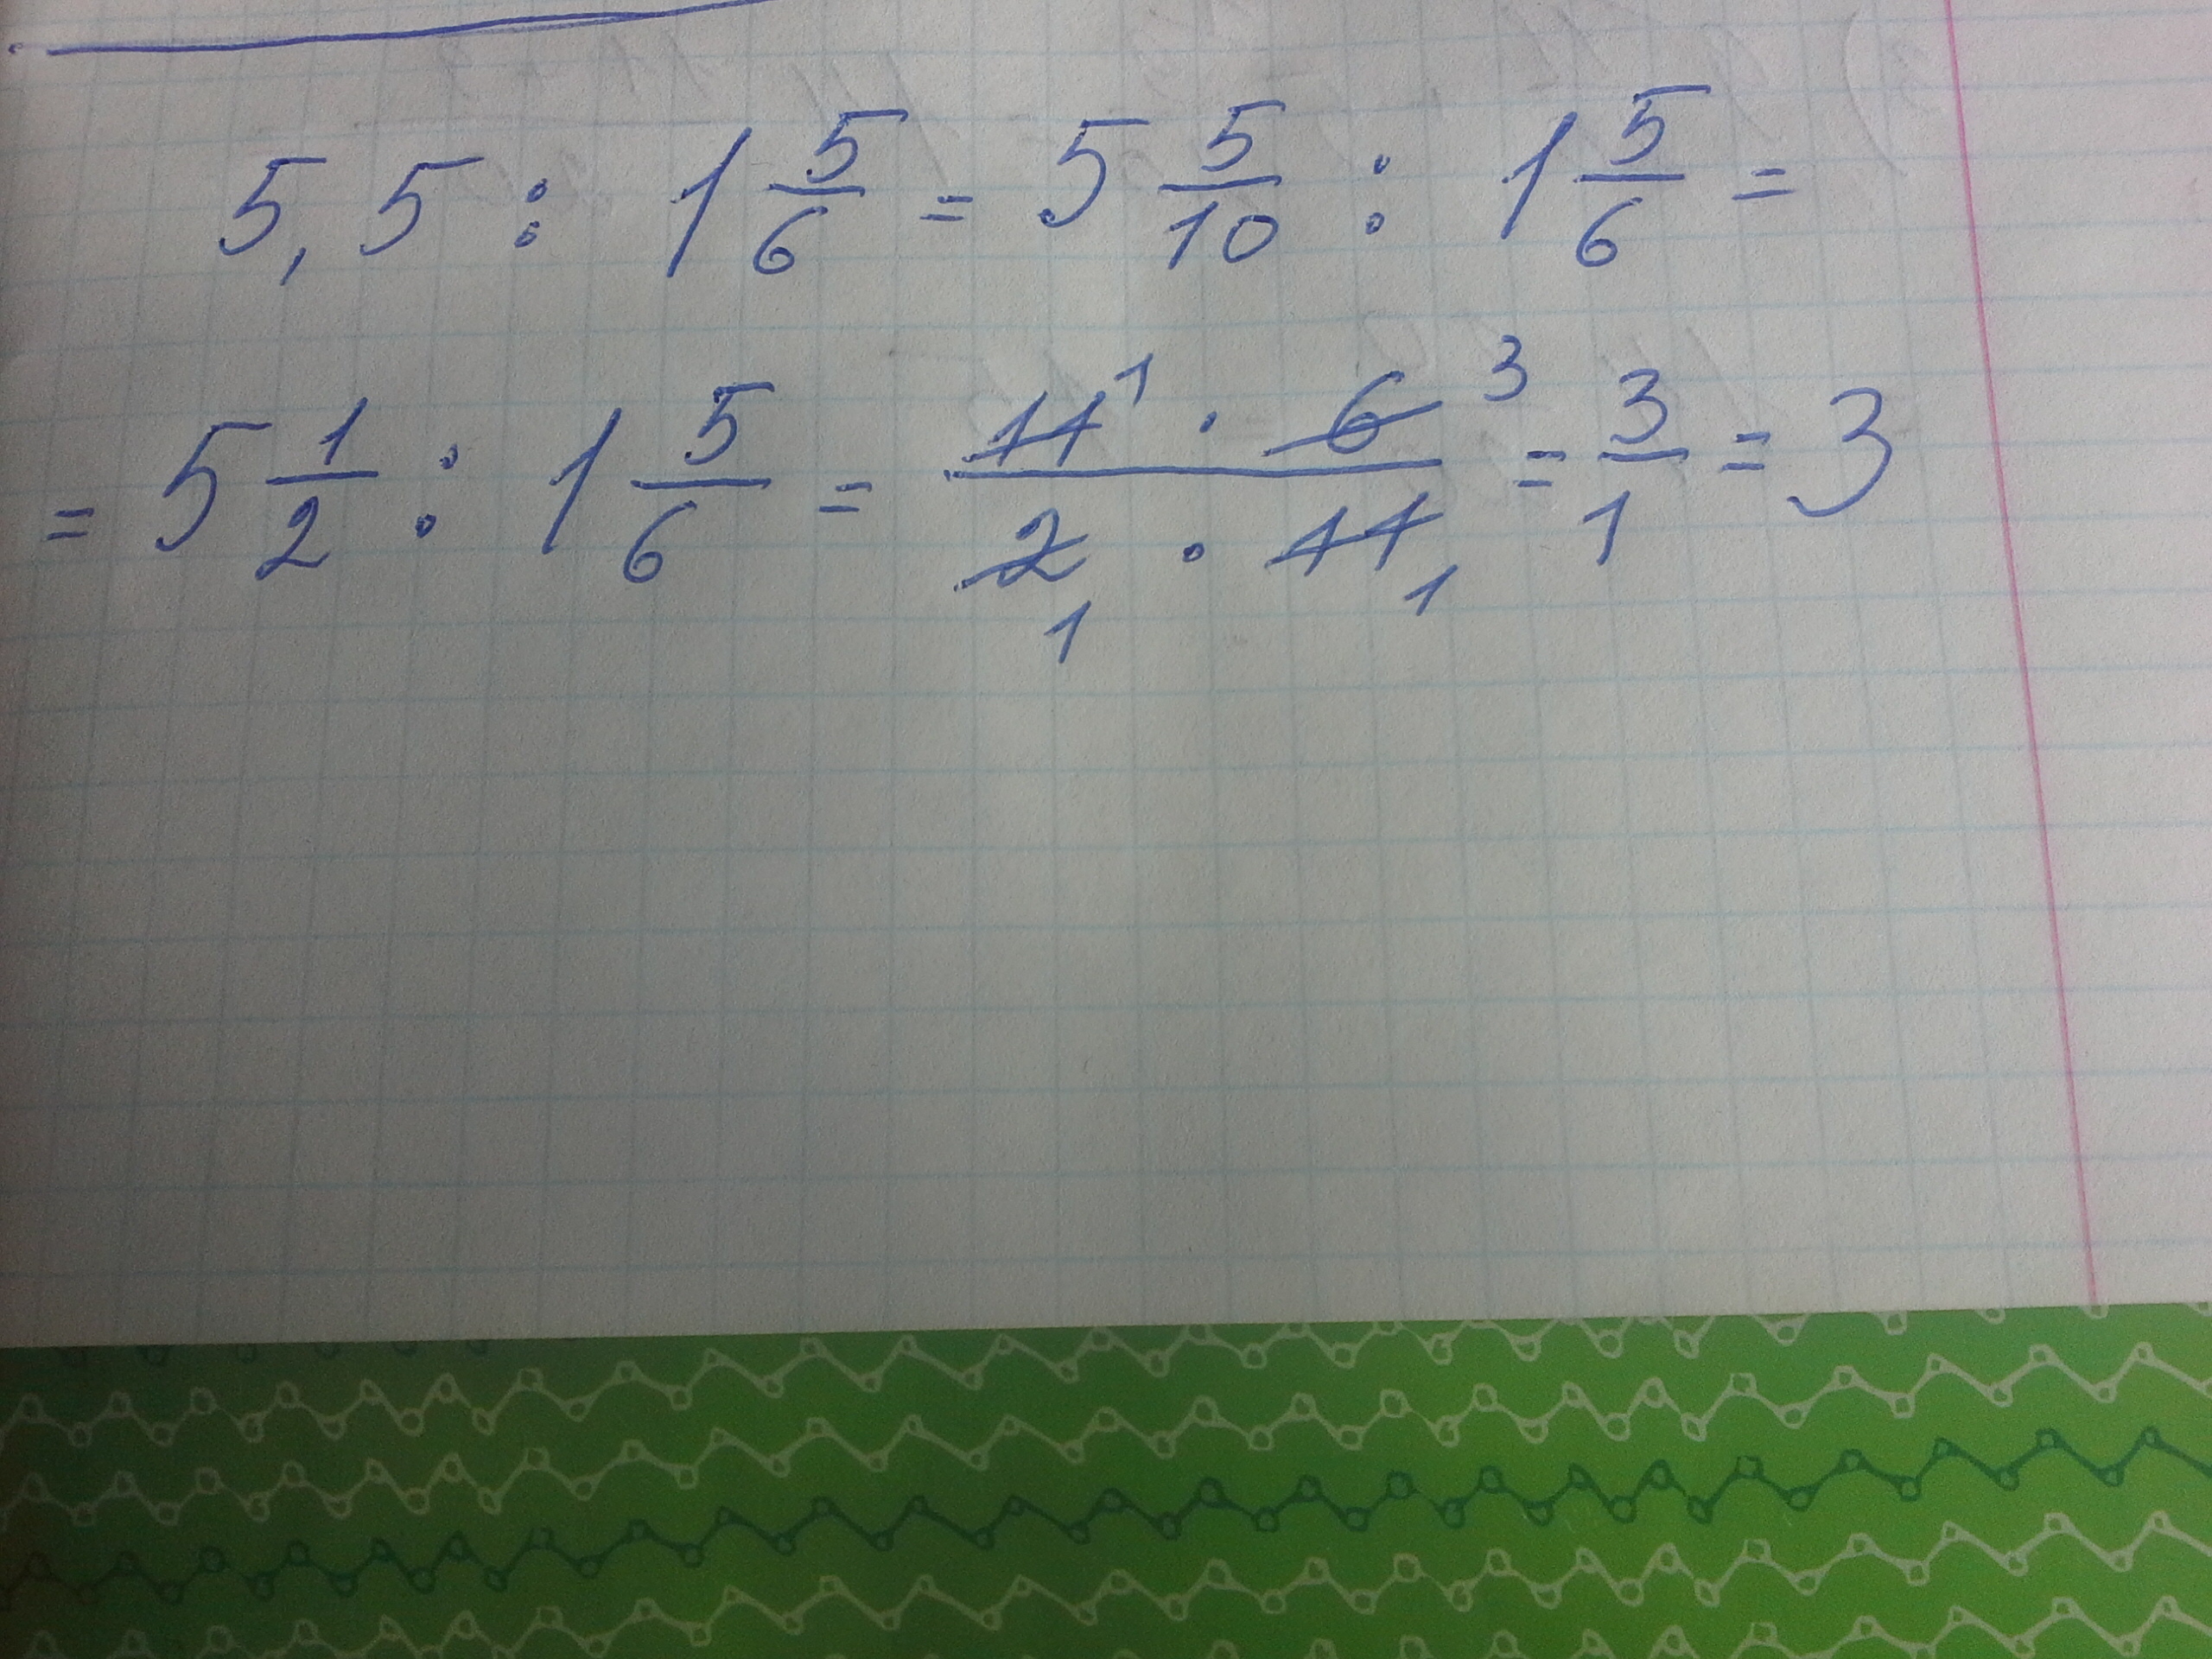 5,5 : 1 5/6 = 5 5/10 : 1 5/6 =
= 5 1/2 : 1 5/6 = 11 1 · 6 3 / 2 1 · 11 1 = 3/1 = 3